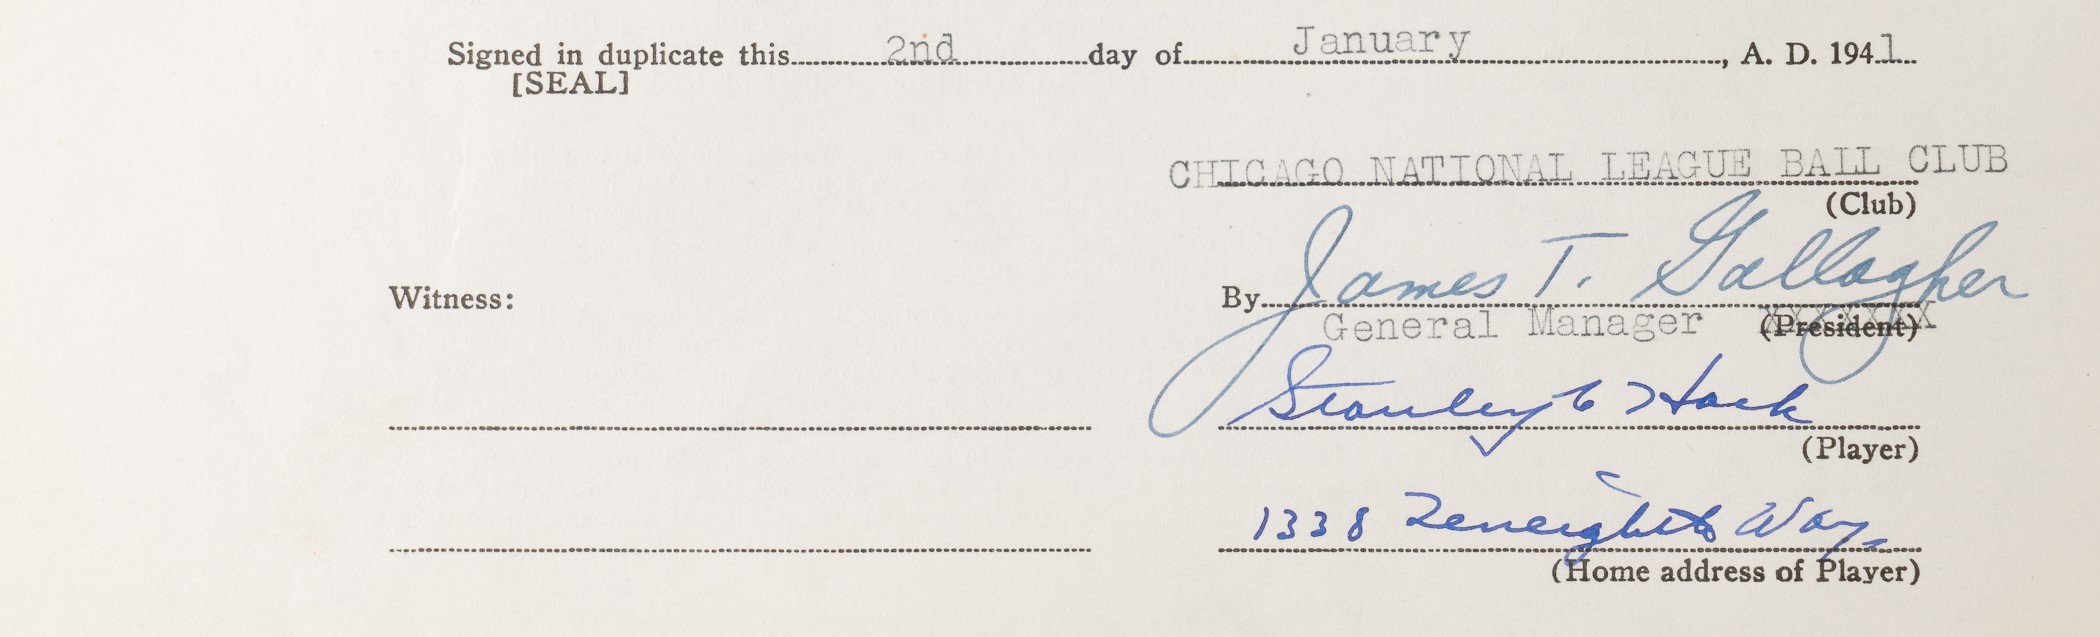 Signed in duplicate this 2nd day of January, A. D. 1941
[SEAL]
CHICAGO NATIONAL LEAGUE BALL CLUB
(Club)
Witness: By James T. Gallagher
General Manager (President)
Stanley C Hack
(Player)
1338 Way
(Home address of Player)